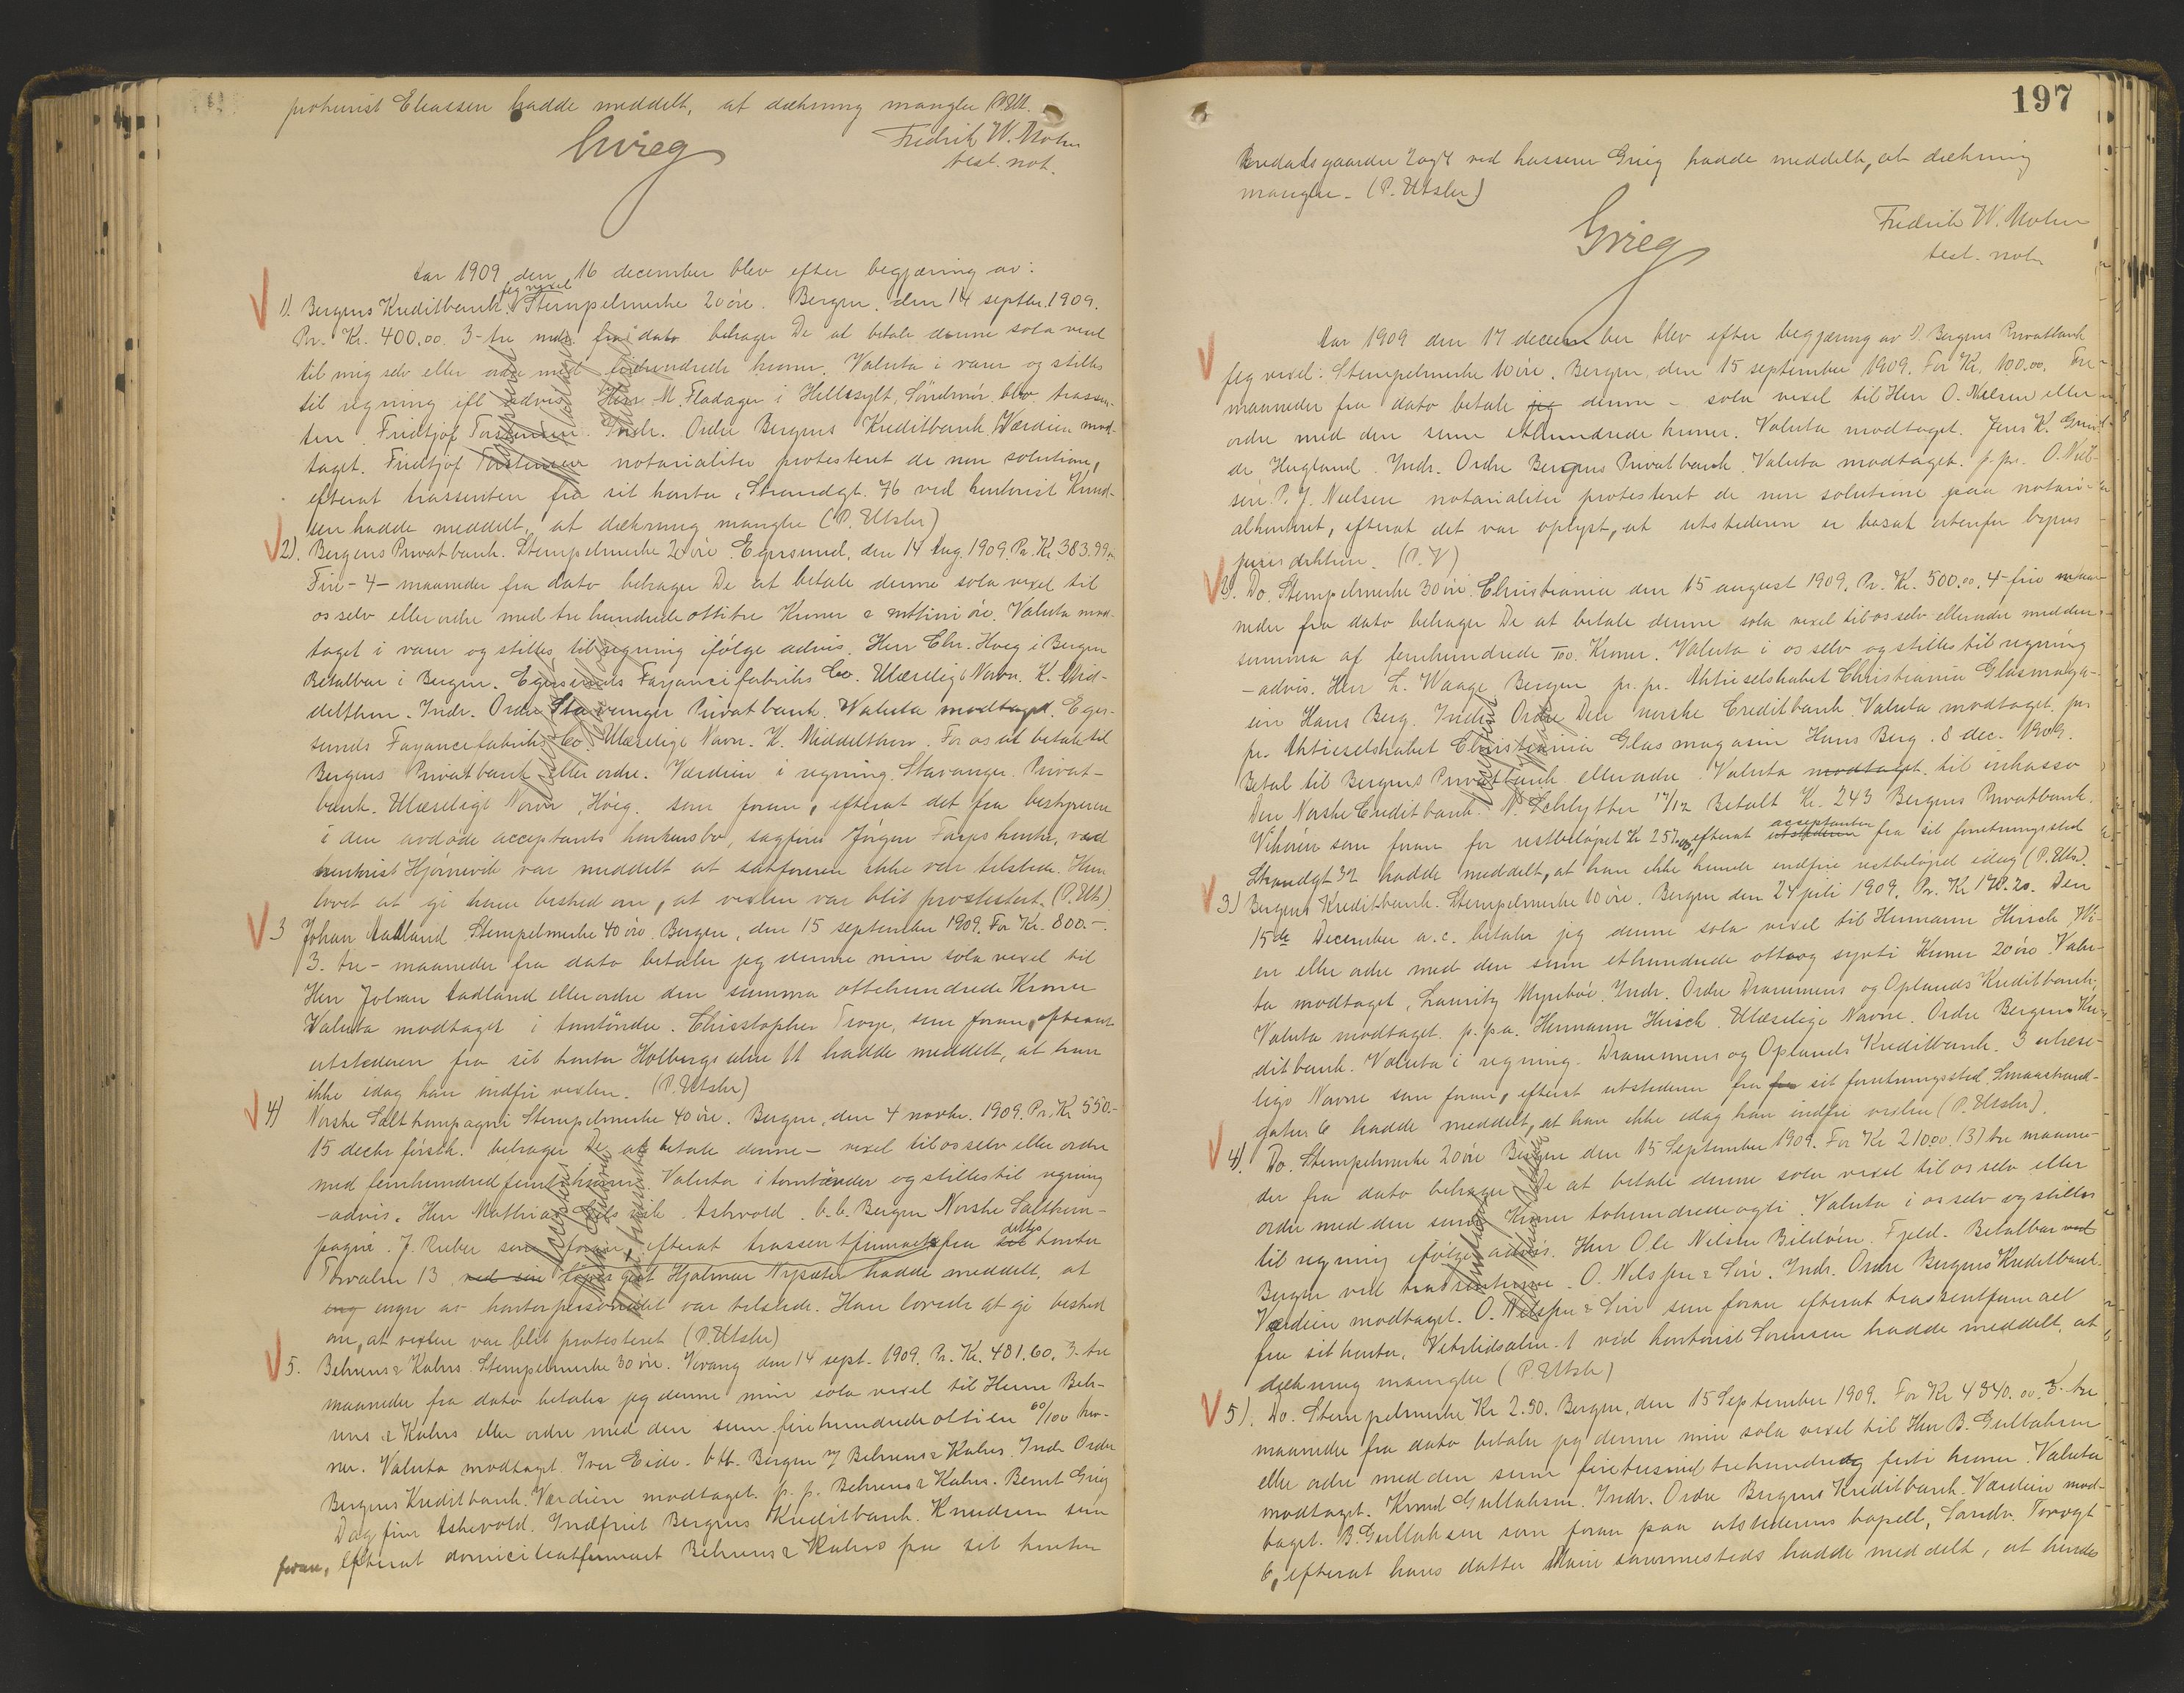 prokurist Eliassen hadde meddelt, at dækning mangler (P.Ut.
Grieg
Fredrik W. Mohn
test. not.
Aar 1909 den 16 december blev efter begjæring av:
1). Bergens Kreditbank flg vexel Stempelmerke 20 øre. Bergen, den 14 septbr. 1909.
Pr. Kr. 400.00. 3-tre mdr. fra dato behager De at betale denne sola vexel
til mig selv eller ordre med firehundrede kroner. Valuta i varer og stilles
til regning ifl advis. Herr M. Fladager i Hellesylt, Söndmör. blev trassen-
ten. Fridtjof Torstensen. Indr. Ordre Bergens Kreditbank Værdien mod-
taget. Fridtjof Torstensen notarialiter protesteret de non solutione,
efterat trassenten fra sit kontor, Strandgt. 76 ved kontorist Knud-
sen hadde meddelt, at dækning mangler (P. Utsler)
2). Bergens Privatbank. Stempelmerke 20 øre. Egersund, den 14 Aug. 1909. Pr. Kr. 383.99.
Fire - 4 - maaneder fra dato behager De at betale denne sola vexel til
os selv eller ordre med tre hundrede ottitre Kroner & nittini øre. Valuta mod-
taget i varer og stilles til regning ifölge advis. Herr Chr. Høeg i Bergen
Betalbar i Bergen. Egersunds Fayancefabriks Co. Ulæselige Navn. K. Mid-
delthon. Indr. Ordre Stavanger Privatbank. Valuta modtaget. Eger-
sunds Fayancefabriks Co. Ulæselige Navn. K. Middelthon. For os at betale til
Bergens Privatbank eller ordre. Værdien i regning. Stavanger Privat-
bank. Ulæselige Navn, Höeg. som foran, efterat det fra bestyreren
i den avdøde acceptants konkursbo, sagfører Jörgen Fayes kontor, ved
kontorist Hjörnevik var meddelt at sakföreren ikke var tilstede. Han
lovet at gi ham besked om, at vexlen var blit prostestert. (P.Ut.)
3 Johan Aadland Stempelmerke 40 øre. Bergen, den 15 september 1909. For Kr. 800.-
3. tre - maaneder fra dato betaler jeg denne min sola vexel til
Herr Johan Aadland eller ordre den summa ottehundrede Kroner
Valuta modtaget i tomtönder. Chisstopher Troye, som foran, efterat
utstederen fra sit kontor Holbergs alm 11 hadde meddelt, at han
ikke idag kan indfri vexlen. (P. Utsler)
4) Norske Saltkompagni Stempelmerke 40 øre. Bergen, den 4 novbr. 1909. Pr. Kr 550.-
15 decbr förstk. behager De at betale denne - vexel til os selv eller ordre
med femhundred femti kroner. Valuta i tomtønder og stilles til regning
- advis. Herr Mathias Askvold. b.b. Bergen Norske Saltkom-
pagni. J. Rieber som foran efterat trassentfirmaets fra dettes kontor
Torvalm 13 ved sin löpergut Hjalmar Nysæter hadde meddelt, at
ingen av kontorpersonalet var tilstede. Han lovede at gi besked
om, at vexlen var blit protesteret (P. Utsler)
5. Behrens & Kahrs. Stempelmerke 30 øre. Vevang den 14 sept. 1909. Pr. Kr. 481.60. 3-tre
maaneder fra dato betaler jeg denne min sola vexel til Herrer Beh-
rens & Kahrs eller ordre med den sum firehundrede ottien 60/100 kro-
ner. Valuta modtaget. Iver Eide. btb. Bergen Behrens & Kahrs. Indr. Ordre
Bergens Kreditbank. Værdien modtaget. p. p. Behrens & Kahrs. Bernt Grieg
Dagfinn Askevold. Indfriet Bergens Kreditbank. Knudsen som
foran, efterat domiciliatfirmaet Behrens & Kahrs fra sit kontor
197
Bredalsgaarden 2 og 4 ved kasserer Grieg hadde meddelt, at dækning
mangler. (P. Utsler)
Grieg
Fredrik W. Mohn
test. not.
Aar 1909 den 17 december blev efter begjæring av 1). Bergens Privatbank
flg vexel: Stempelmerke 10 øre. Bergen, den 15 september 1909. For Kr. 100.00. Tre
maaneder fra dato betale jeg denne - sola vexel til Herr O. Nielsen eller
ordre med den sum ethundrede kroner. Valuta modtaget. Jens K. Grin-
de Haugland. Indr. Ordre Bergens Privatbank. Valuta modtaget. p. pr. O. Niel-
sen P. J. Nielsen notarialiter protesteret de non solutione paa notari-
alkontoret, efterat det var oplyst, at utstederen er bosat utenfor byens
jurisdiktion. (P.V)
2). Do. Stempelmerke 30 øre. Christiania den 15 august 1909. Pr. Kr. 500.00. 4-fire maa-
neder fra dato behager De at betale denne sola vexel til os selv eller ordre med den
summa af femhundrede /100. Kroner. Valuta i os selv og stilles til regning
- advis. Herr L. Waage. Bergen pr. pr. Aktieselskabet Christiania Glasmaga-
sin Hans Berg. Indr. Ordre Den norske Creditbank. Valuta modtaget. pr.
pr. Aktieselskabet Christiania Glasmagasin Hans Berg. 8 dec. 1909.
Betal til Bergens Privatbank eller ordre. Valuta modtaget til inkasso
Den Norske Creditbank. N. Schlytter 17/12 Betalt Kr. 243 Bergens Privatbank.
Vikören som foran for restbelöpet Kr 257.00, efterat acceptanten fra sit forretningssted
Strandgt 32 hadde meddelt, at han ikke kunde indfri restbelöpet idag (P. Uts.)
3) Bergens Kreditbank. Stempelmerke 10 øre. Bergen den 24 juli 1909. Pr. Kr 178.20. Den
15de December a.c. betaler jeg denne sola vexel til Hermann Hirsch Wi-
en eller ordre med den sum ethundrede otteog sytti Kroner 20 øre. Valu-
ta modtaget, Lauritz Myrebøe. Indr. Ordre Drammens og Oplands Kreditbank,
Valuta modtaget. p. pa. Hermann Hirsch. Ulæselige Navne. Ordre Bergens Kre-
ditbank. Valuta i regning. Drammens og Oplands Kreditbank. 3 ulæse-
lige Navne som foran, efterat utstederen fra sit forretningssted Smaastrand-
gaten 6 hadde meddelt, at han ikke idag kan indfri vexlen (P. Utsler).
4). Do. Stempelmerke 20 øre Bergen den 15 September 1909. For Kr 210.00. (3) tre maane-
der fra dato behager De at betale denne sola vexel til os selv eller
ordre med den sum Kroner tohundredeogti. Valuta i os selv og stilles
til regning ifölge advis. Herr Ole Nilsen Bildöen. Fjeld. Betalbar ved
Bergen ved trassenterne. O. Nilssen & Sön. Indr. Ordre Bergens Kreditbank.
Værdien modtaget. O. Nilssen & Sön som foran efterat trassentfirmaet
fra sit kontor, Vetrlidsalm. 1 ved kontorist Sörensen hadde meddelt, at
dækning mangler (P. Utsler)
5). Do. Stempelmerke Kr 2.90. Bergen, den 15 September 1909. For Kr 4340.00. 3-tre
maaneder fra dato betaler jeg denne min sola vexel til Herr B. Gullaksen
eller ordre med den sum firetusind trehundredeog firti kroner. Valuta
modtaget. Knud Gullaksen. Indr. Ordre Bergens Kreditbank. Værdien mod-
taget. B. Gullaksen som foran paa utstederens bopæl, Söndr. Torvgt
6, efterat hans datter Marie sammesteds hadde meddelt, at hendes